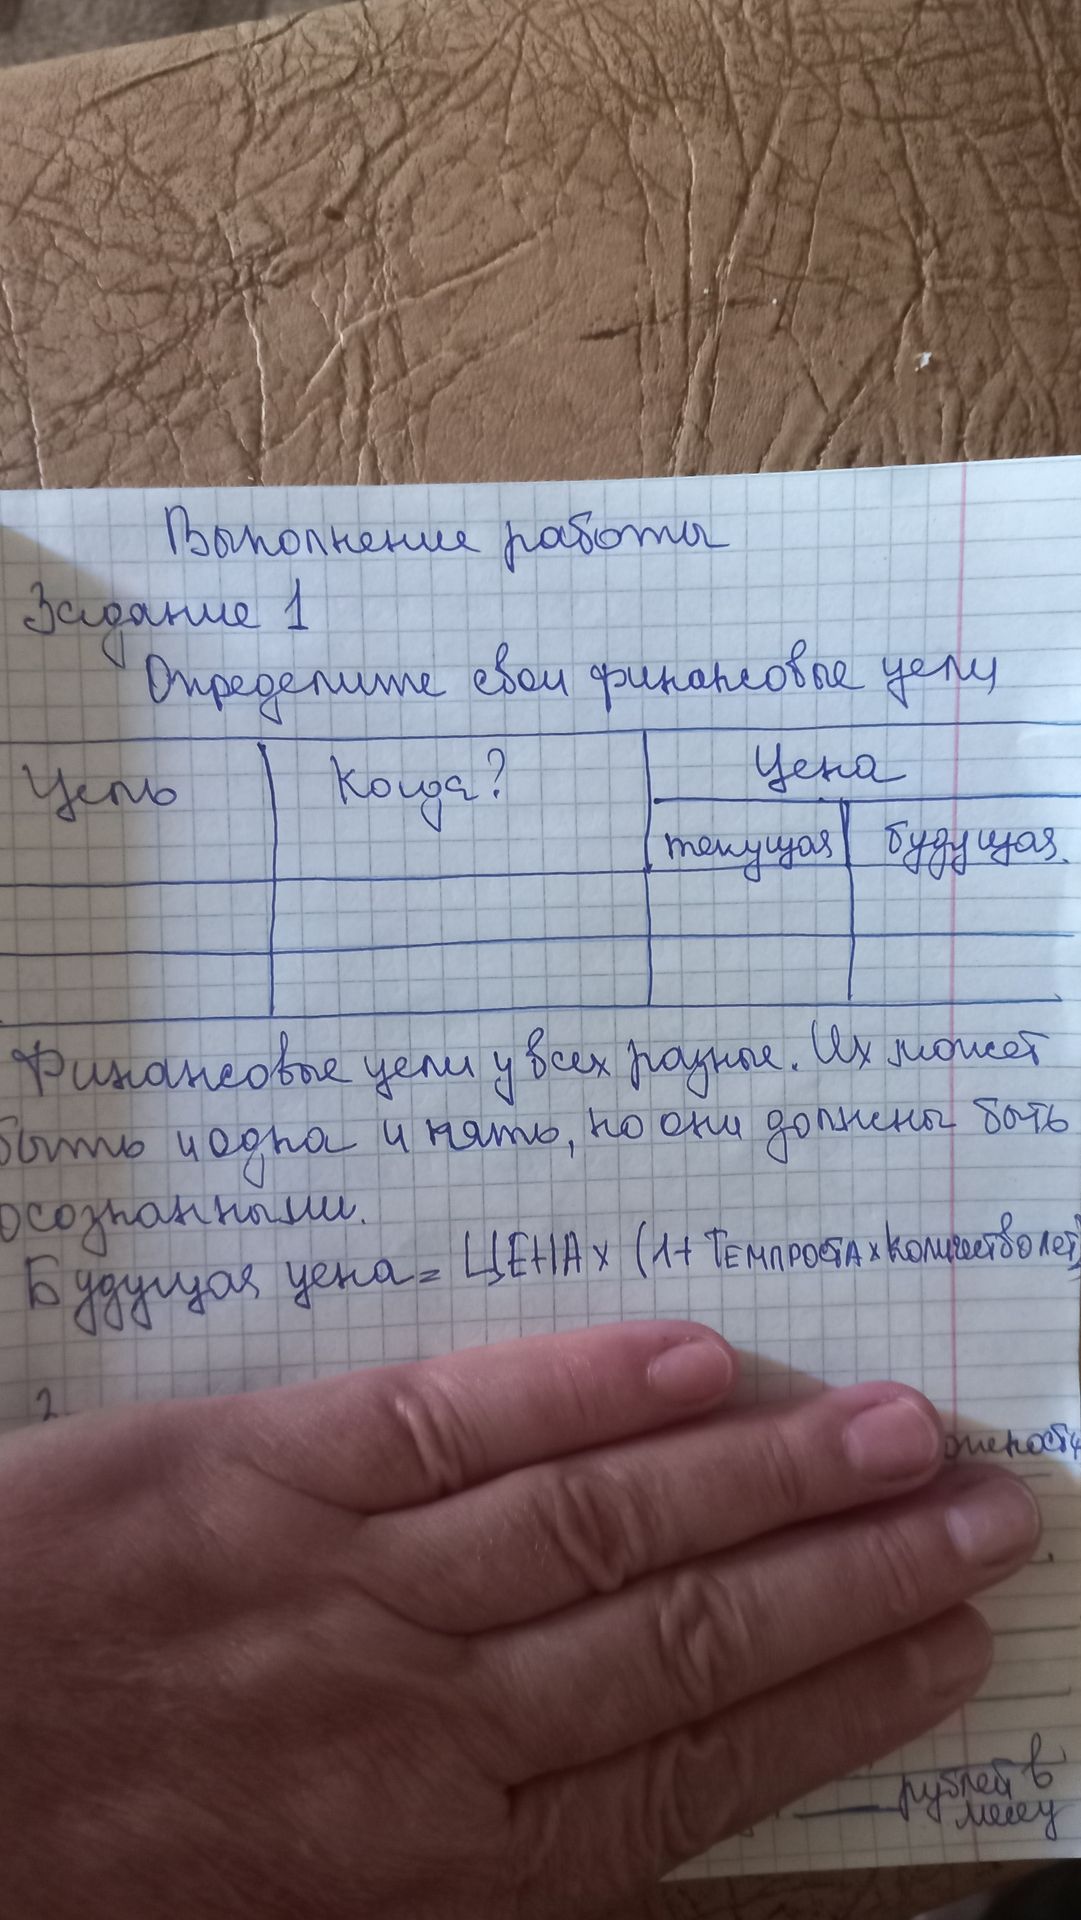 Выполнение работы
Задание 1
Определите свои финансовые цели
Цель Когда? Цена
текущая будущая
Финансовые цели у всех разные. Их может
быть и одна и пять, но они должны быть
осознанными.
Будущая цена = ЦЕНА х (1+ ТЕМПРОСТА х КОЛИЧЕСТВО ЛЕТ)
2
рублей в